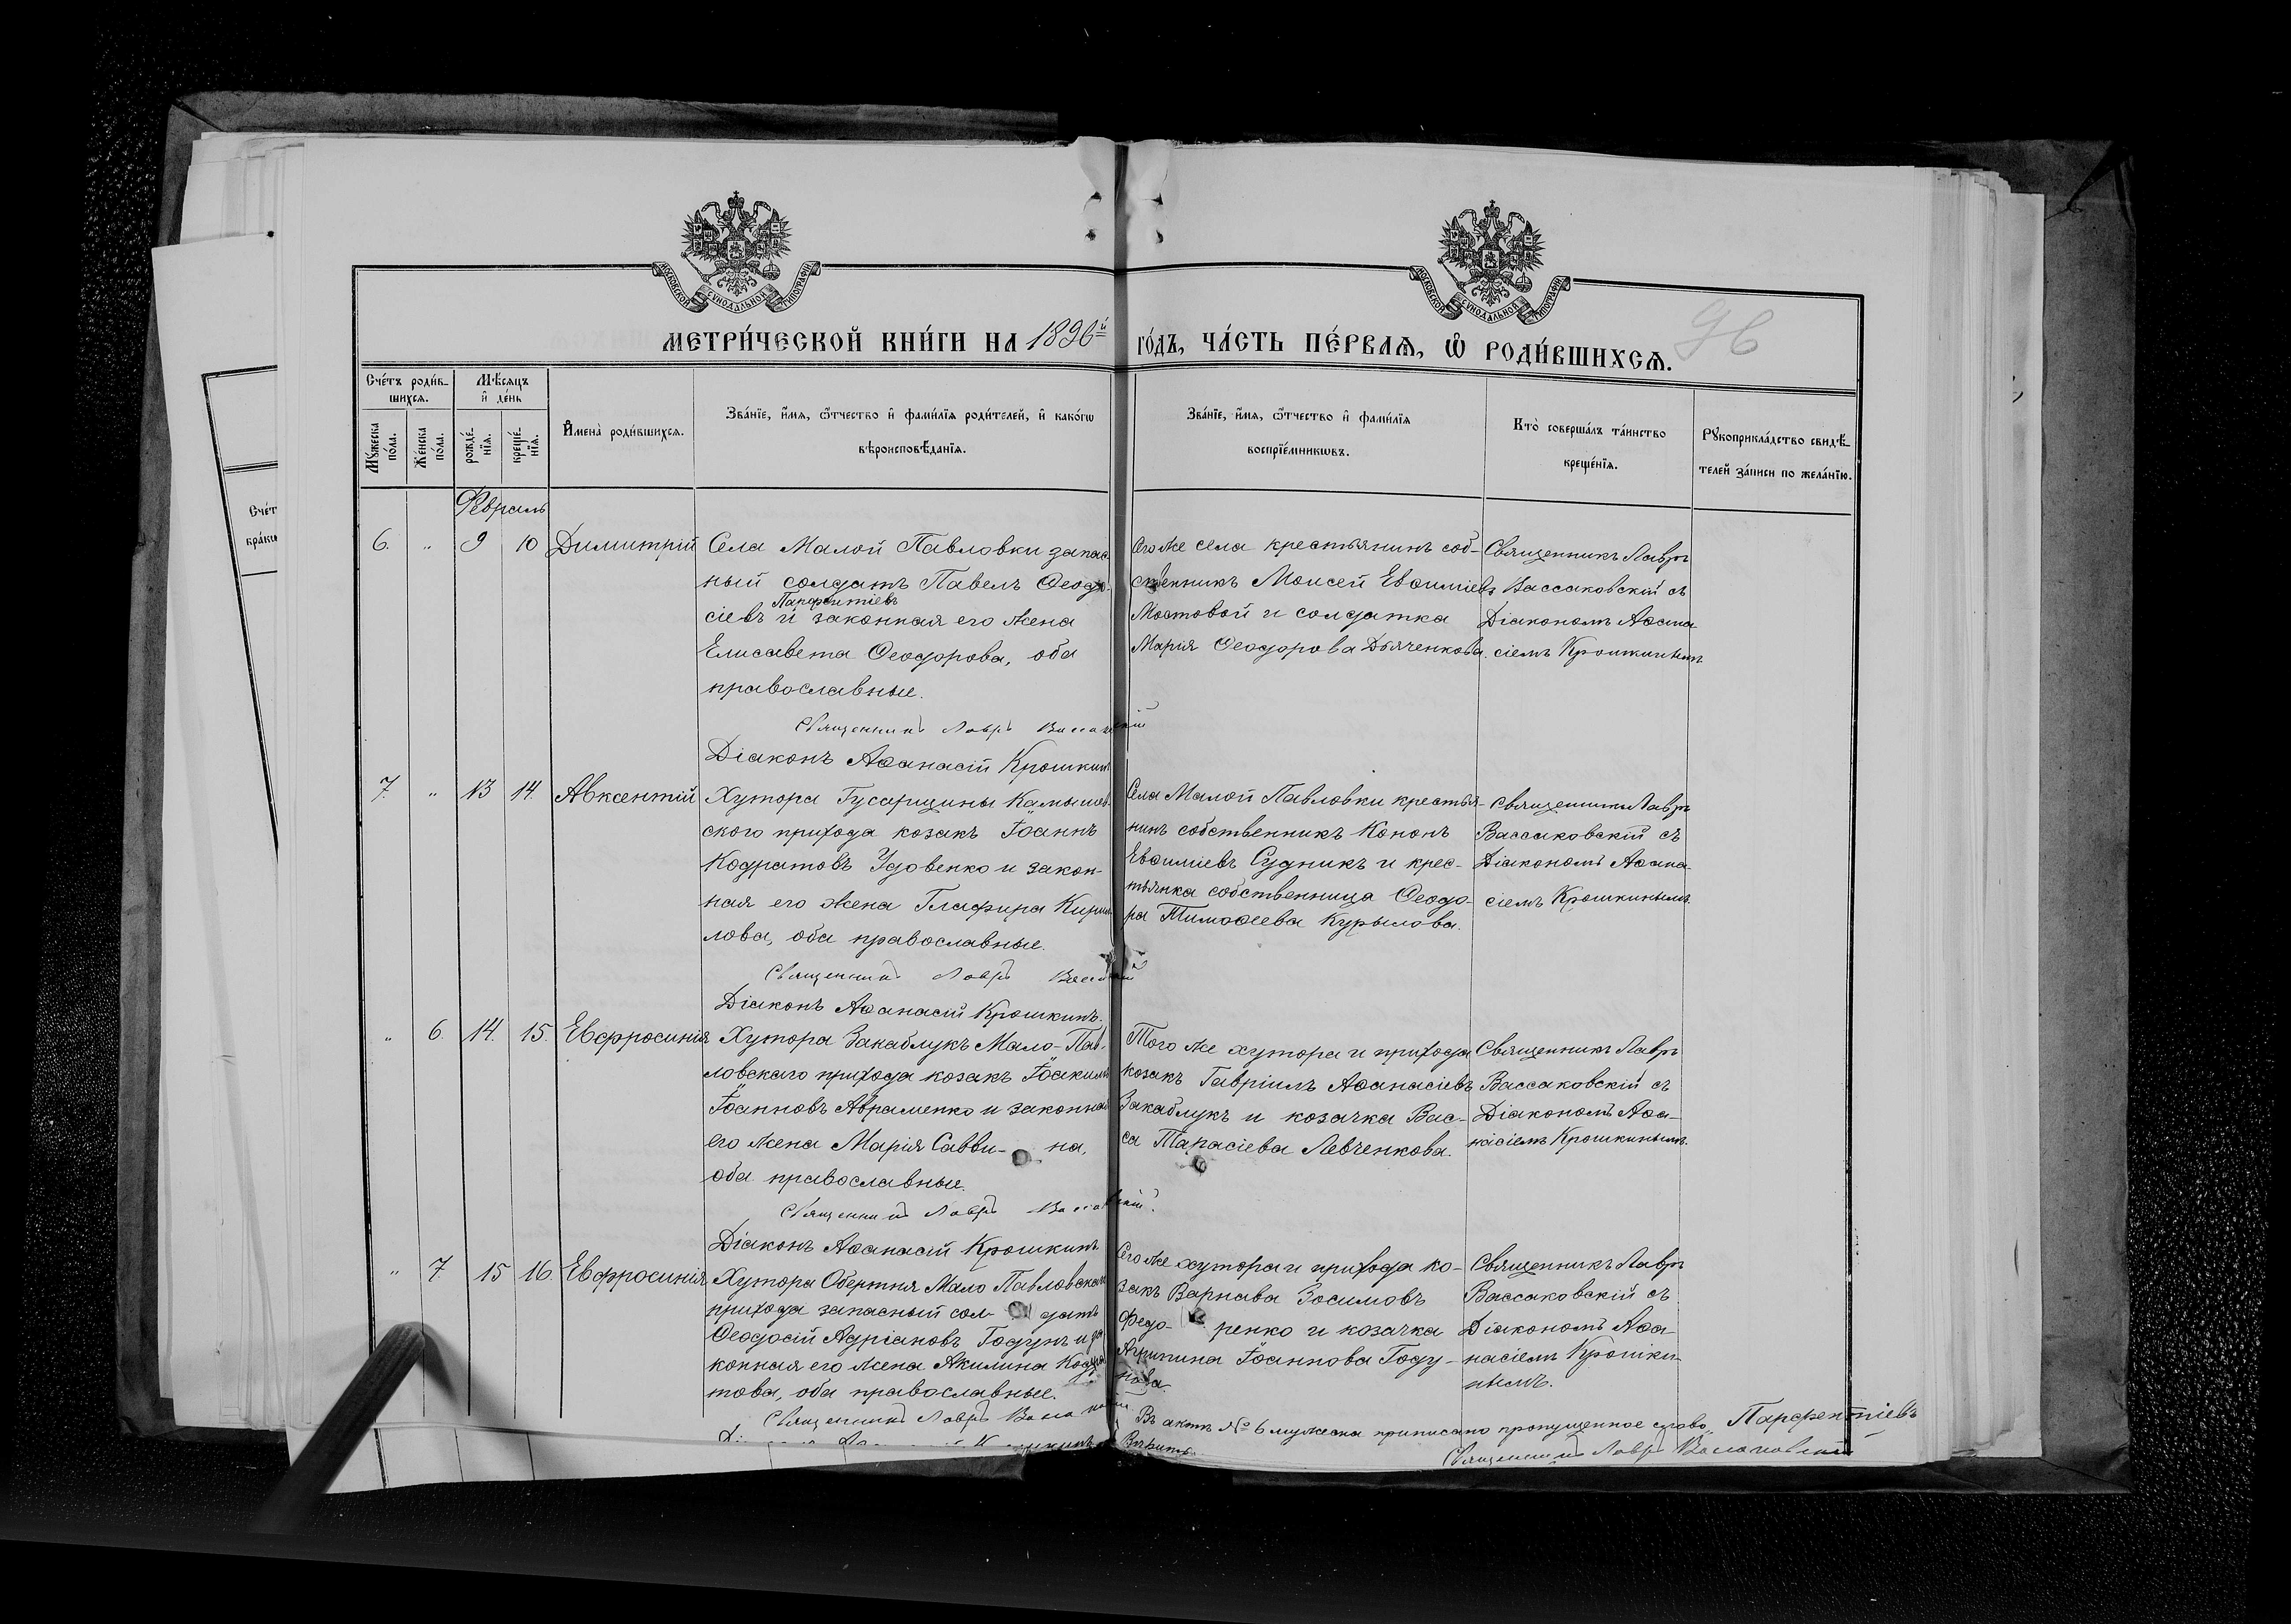 МОСКОВСКОЙ СѴНОДАЛЬНОЙ ТИПОГРАФІИ
МОСКОВСКОЙ СѴНОДАЛЬНОЙ ТИПОГРАФІИ
МЕТРИ́ЧЕСКОЙ КНИ́ГИ НА 1896й
ГО́ДЪ, ЧА́СТЬ ПЕ́РВАѦ, Ѡ҆ РОДИ́ВШИХСѦ.
96
Сче́тъ роди́в-
шихсѧ.
Мѣ́сѧцъ
и҆ де́нь
Мꙋ́жеска
по́ла.
Же́нска
по́ла.
рожде́-
нїѧ.
креще́-
нїѧ.
И҆мена̀ роди́вшихсѧ.
Зва́нїе, и҆́мѧ, ѻ҆́тчество и҆ фами́лїѧ роди́телей, и҆ како́гѡ
вѣроисповѣ́данїѧ.
Зва́нїе, и҆́мѧ, ѻ҆́тчество и҆ фами́лїѧ
воспрїе́мникѡвъ.
Кто̀ соверша́лъ та́инство
креще́нїѧ.
Рꙋкоприкла́дство свидѣ́-
телей за́писи по жела́нїю.
Счет
бра́кѡ
Февраль
6. " 9 10 Димитрій
Села Малой Павловки запас-
ный солдатъ Павелъ Ѳеодо-
Парфентіевъ
сіевъ и законная его жена
Елисавета Ѳеодорова, оба
православные.
Священникъ Лавръ Вассаковскій
Діаконъ Аѳанасій Крошкинъ
Того же села крестьянинъ соб-
ственникъ Моисей Евѳиміевъ
Мостовой и солдатка
Марія Ѳеодорова Дьяченкова.
Священникъ Лавръ
Вассаковскій съ
Діакономъ Аѳана-
сіемъ Крошкинымъ
7. " 13 14. Авксентій
Хутора Гусарщины Камышев-
ского прихода козакъ Іоаннъ
Кодратовъ Удовенко и закон-
ная его жена Глафира Кирил-
лова, оба православные.
Священникъ Лавръ Вассаковскій
Діаконъ Аѳанасій Крошкинъ.
Села Малой Павловки крестья-
нинъ собственникъ Кононъ
Евѳиміевъ Судникъ и крес-
тьянка собственница Ѳеодо-
ра Тимоѳеева Курылова.
Священникъ Лавръ
Вассаковскій съ
Діакономъ Аѳана-
сіемъ Крошкинымъ.
" 6. 14. 15. Евфросинія
Хутора Закаблукъ Мало-Пав-
ловскаго прихода козакъ Іоакимъ
Іоанновъ Авраменко и законная
его жена Марія Савви- на,
оба православные.
Священникъ Лавръ Вассаковскій.
Діаконъ Аѳанасій Крошкинъ
Того же хутора и прихода
козакъ Гавріилъ Аѳанасіевъ
Закаблукъ и козачка Вас-
са Тарасіева Левченкова.
Священникъ Лавръ
Вассаковскій съ
Діакономъ Аѳа-
насіемъ Крошкинымъ.
" 7. 15 16. Евфросинія
Хутора Обертня Мало Павловскаго
прихода запасный сол- датъ
Ѳеодосій Адріановъ Годунъ и за
конная его жена Акилина Кодра
това, оба православные.
Священникъ Лавръ
Сего же хутора и прихода ко-
закъ Варнава Зосимовъ
Федо- ренко и козачка
Агрипина Іоаннова Году-
нова.
Священникъ Лавръ
Вассаковскій съ
Діакономъ Аѳа-
насіемъ Крошки-
нымъ.
Въ актѣ № 6 мужеска приписано пропущенное слово „Парфентіевъ
Вѣрить.
Священникъ Лавръ Вассаковскій